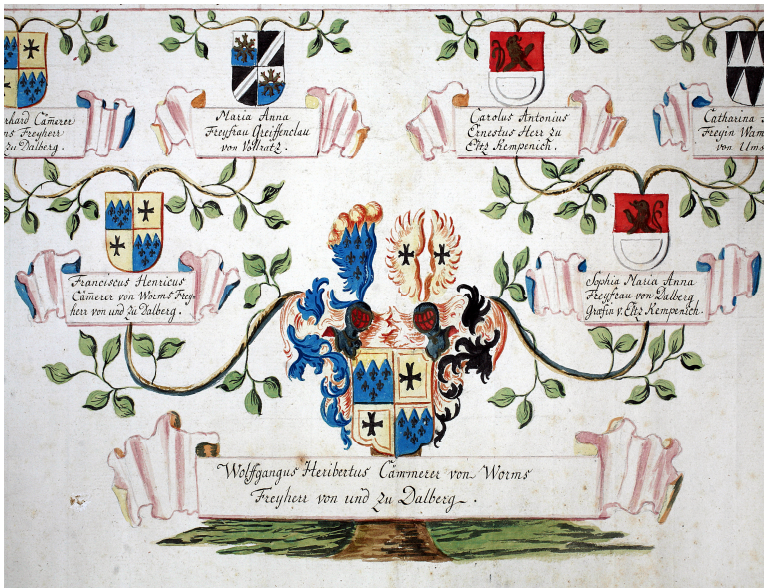 Cäm̃erer
Freyherr
zu Dalberg.
Maria Anna
Freyfrau Greiffenclau
von Vollratz.
Carolus Antonius
Ernestus Herr zu
Eltz Kempenich.
Catharina
Freyin
von
Franciscus Henricus
Cäm̃erer von Worms Frey-
herr von und zu Dalberg.
Sophia Maria Anna
Freyfrau von Dalberg
Gräfin v. Eltz Kempenich.
Wolffgangus Heribertus Cämmerer von Worms
Freyherr von und zu Dalberg.